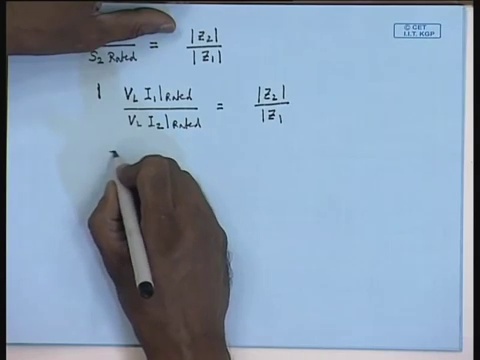 © CET
I.I.T. KGP
S2 Rated = |Z2| / |Z1|
| VL I1|Rated / VL I2|Rated = |Z2| / |Z1